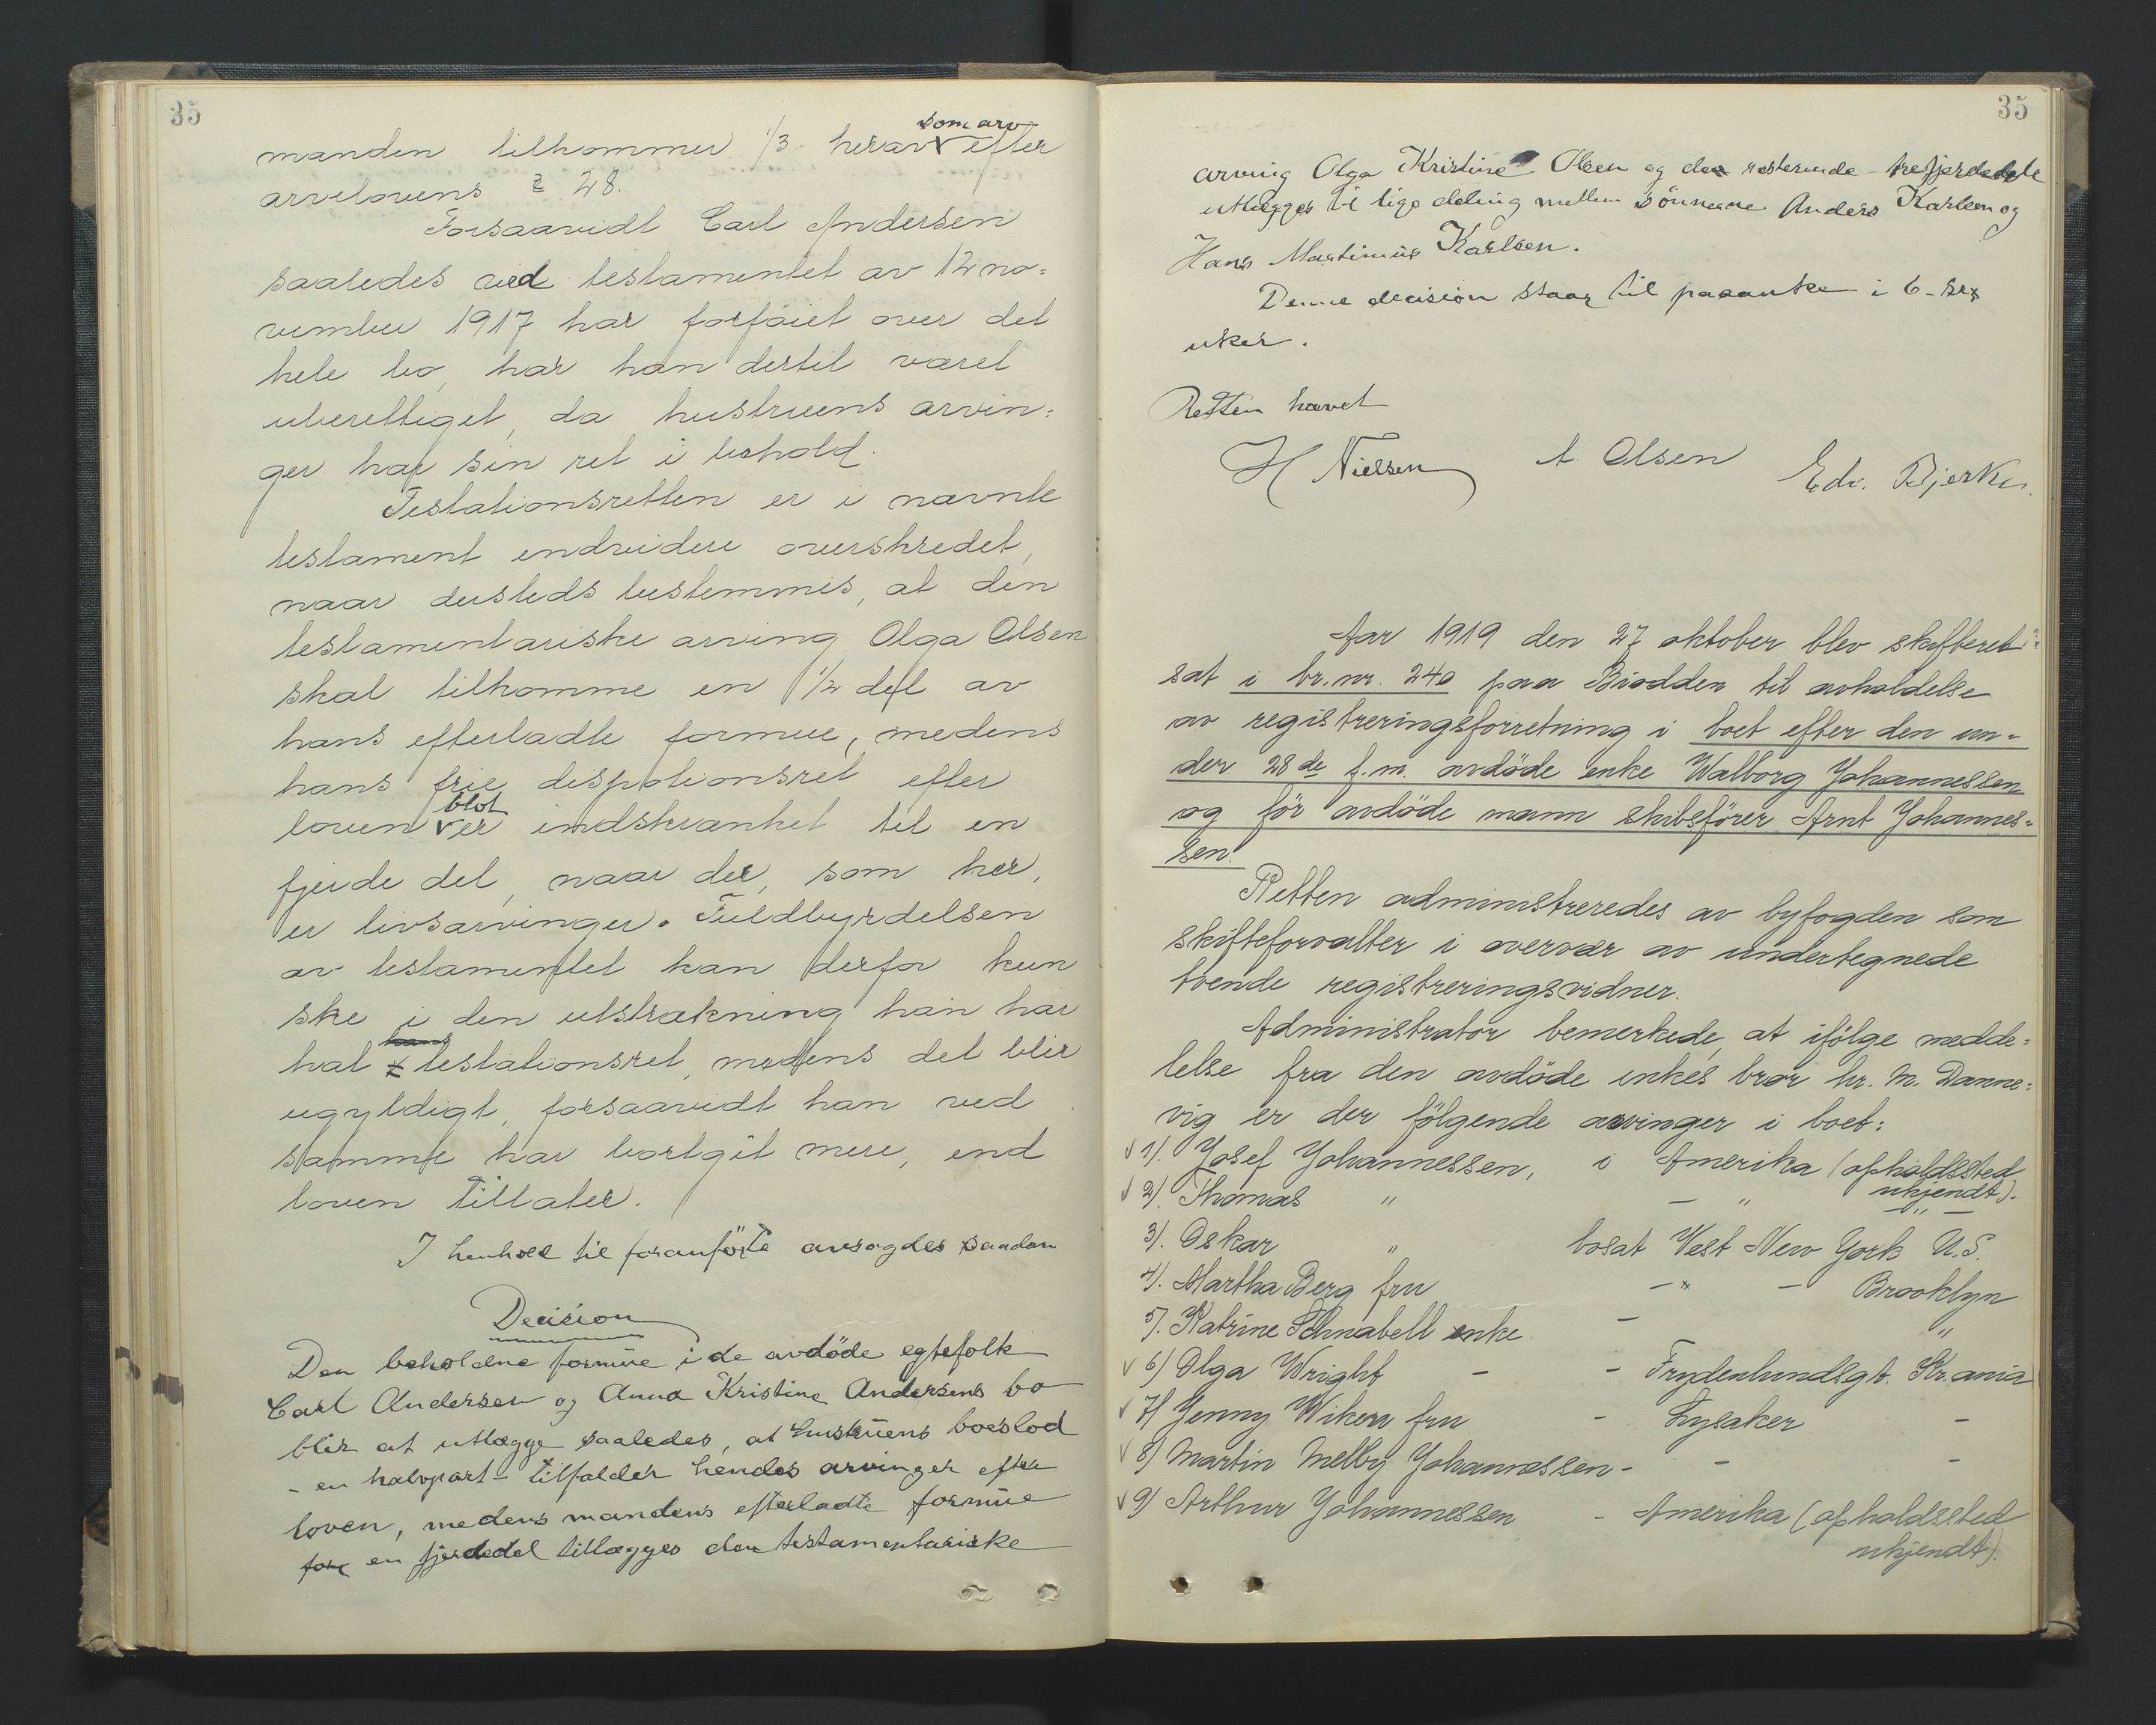 35
manden tilkommer 1/3 herav som arv efter
arvelovens § 28.
Forsaavidt Carl Andersen
saaledes ved testamentet av 12 no=
vember 1917 har forføiet over det
hele bo, har han dertil været
uberettiget, da hustruens arvin=
ger har sin ret i behold.
Testationsretten er i nævnte
testament endvidere overskredet,
naar dersteds bestemmes, at den
testamentariske arving Olga Olsen
skal tilkomme en 1/2 del av
hans efterladte formue, medens
hans frie dispotionsret efter
loven blot er indskrænket til en
fjerde del, naar der, som her,
er livsarvinger. Fuldbyrdelsen
av testamentet kan derfor kun
ske i den utstrækning han har
hat testationsret, medens det blir
ugyldigt, forsaavidt han ved
samme har bortgit mere, end
loven tillater.
I henhold til foranförte avsagdes saadan
Decision
Den beholdne formue i de avdöde egtefolk
Carl Andersen og Anna Kristine Andersens bo
blir at utlægge saaledes, at hustruens boeslod
- en halvpart - tilfalder hendes arvinger efter
loven, medens mandens efterladte formue
for en fjerdedel tillægges den testamentariske
35
arving Olga Kristine Olsen og den resterende - trefjerdedele
utlægges til lige deling mellem sönnerne Anders Karlsen og
Hans Martinius Karlsen.
Denne decision staar til paaanke i 6 - sex
uker.
Retten hævet
H Nielsen A. Olsen Edv. Bjerke.
Aar 1919 den 27 oktober blev skifteret
sat i br. nr. 240 paa Biodden til avholdelse
av registreringsforretning i boet efter den un=
der 28de f.m. avdöde enke Walborg Johannessen
og för avdöde mann skibsförer Arnt Johannes=
sen.
Retten administreredes av byfogden som
skifteforvalter i overvær av undertegnede
tvende registreringsvidner.
Administrator bemerkede, at ifölge medde=
lelse fra den avdöde enkes bror hr. M. Danne=
vig er der fölgende arvinger i boet:
√ 1). Josef Johannessen, i Amerika (opholdssted
ukjendt).
√ 2). Thomas " - " - " -
3). Oskar " bosat West New York U.S.
4). Martha Berg fru - " - Brooklyn
5). Katrine Schnabell enke - "
√ 6) Olga Wright - - Frydenlundsgt. Kr.ania
√ 7) Jenny Wiken fru - Lysaker -
√ 8) Martin Melby Johannessen - - -
√ 9) Arthur Johannessen - Amerika (opholdssted
ukjendt).